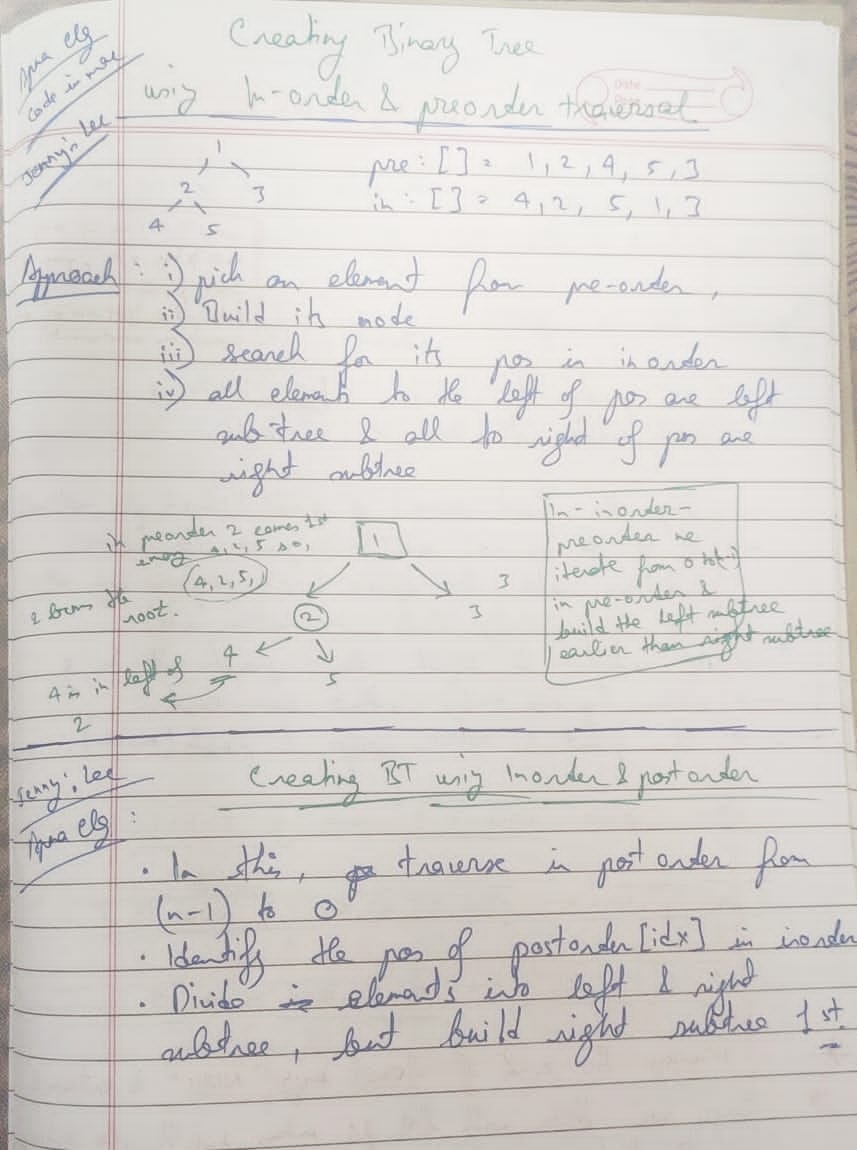 Apna clg
code in mac
Jenny's Lec
Creating Binary Tree
using In-order & preorder traversal
Date
1
2 3
4 5
pre : [ ] = 1, 2, 4, 5, 3
in : [ ] = 4, 2, 5, 1, 3
Approach : i) pick an element from pre-order,
ii) Build its node
iii) search for its pos in inorder
iv) all elements to the left of pos are left
sub-tree & all to right of pos are
right subtree
in preorder 2 comes 1st
4, 2, 5 so,
4, 2, 5,
2 the
root.
1
3
2 3
4 5
4 is in left of
2
In-inorder-
preorder we
iterate from 0 to
in pre-order &
build the left subtree
earlier than right subtree
Jenny's Lec
Apna clg :
Creating BT using Inorder & postorder
• In this, traverse in post order from
(n-1) to 0
• Identify the pos of postorder[idx] in inorder
• Divide elements into left & right
subtree, but build right subtree 1st